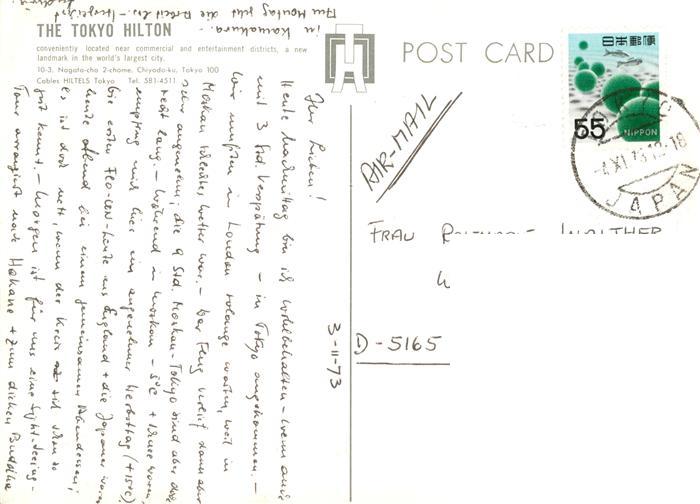 THE TOKYO HILTON
conveniently located near commercial and entertainment districts, a new
landmark in the world's largest city.
10-3, Nagata-cho 2-chome, Chiyoda-ku, Tokyo 100
Cables HILTELS Tokyo Tel. 581-4511
POST CARD
AIR-MAIL
日本郵便
55
NIPPON
JAPAN
FRAU WALTHER
D-5165
3-11-73
Ihr Lieben!
Heute Nachmittag bin ich wohlbehalten - wenn auch
mit 3 Std Verspätung - in Tokyo angekommen. -
Wir mußten in London solange warten, weil in
Moskau schlechtes Wetter war. - Der Flug verlief dann aber
sehr angenehm, die 9 Std. Moskau-Tokyo sind aber doch
recht lang. - Während in Moskau -5°C + Schnee waren,
empfing mich hier ein angenehmer Herbsttag (+15°C).
Die ersten Leute aus England + die Japaner waren
heute Abend bei einem gemeinsamen Abendessen;
es ist doch nett, wenn der Kreis sich schon so
gut kennt. - Morgen ist für uns eine Sight-seeing-
Tour arrangiert nach Hakone + zum dicken Buddha
in Kamakura. -
Am Montag geht die Arbeit los. -